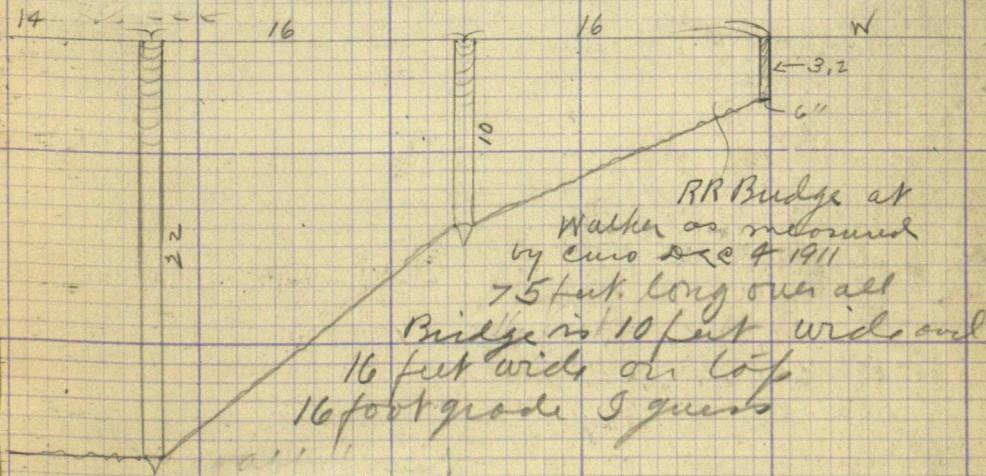 14 16 16 W
3,2
6"
10
22
RR Bridge at
Walker as measured
by Dec 4 1911
75 feet long over all
Bridge is 10 feet wide and
16 feet wide on top
16 foot grade I guess